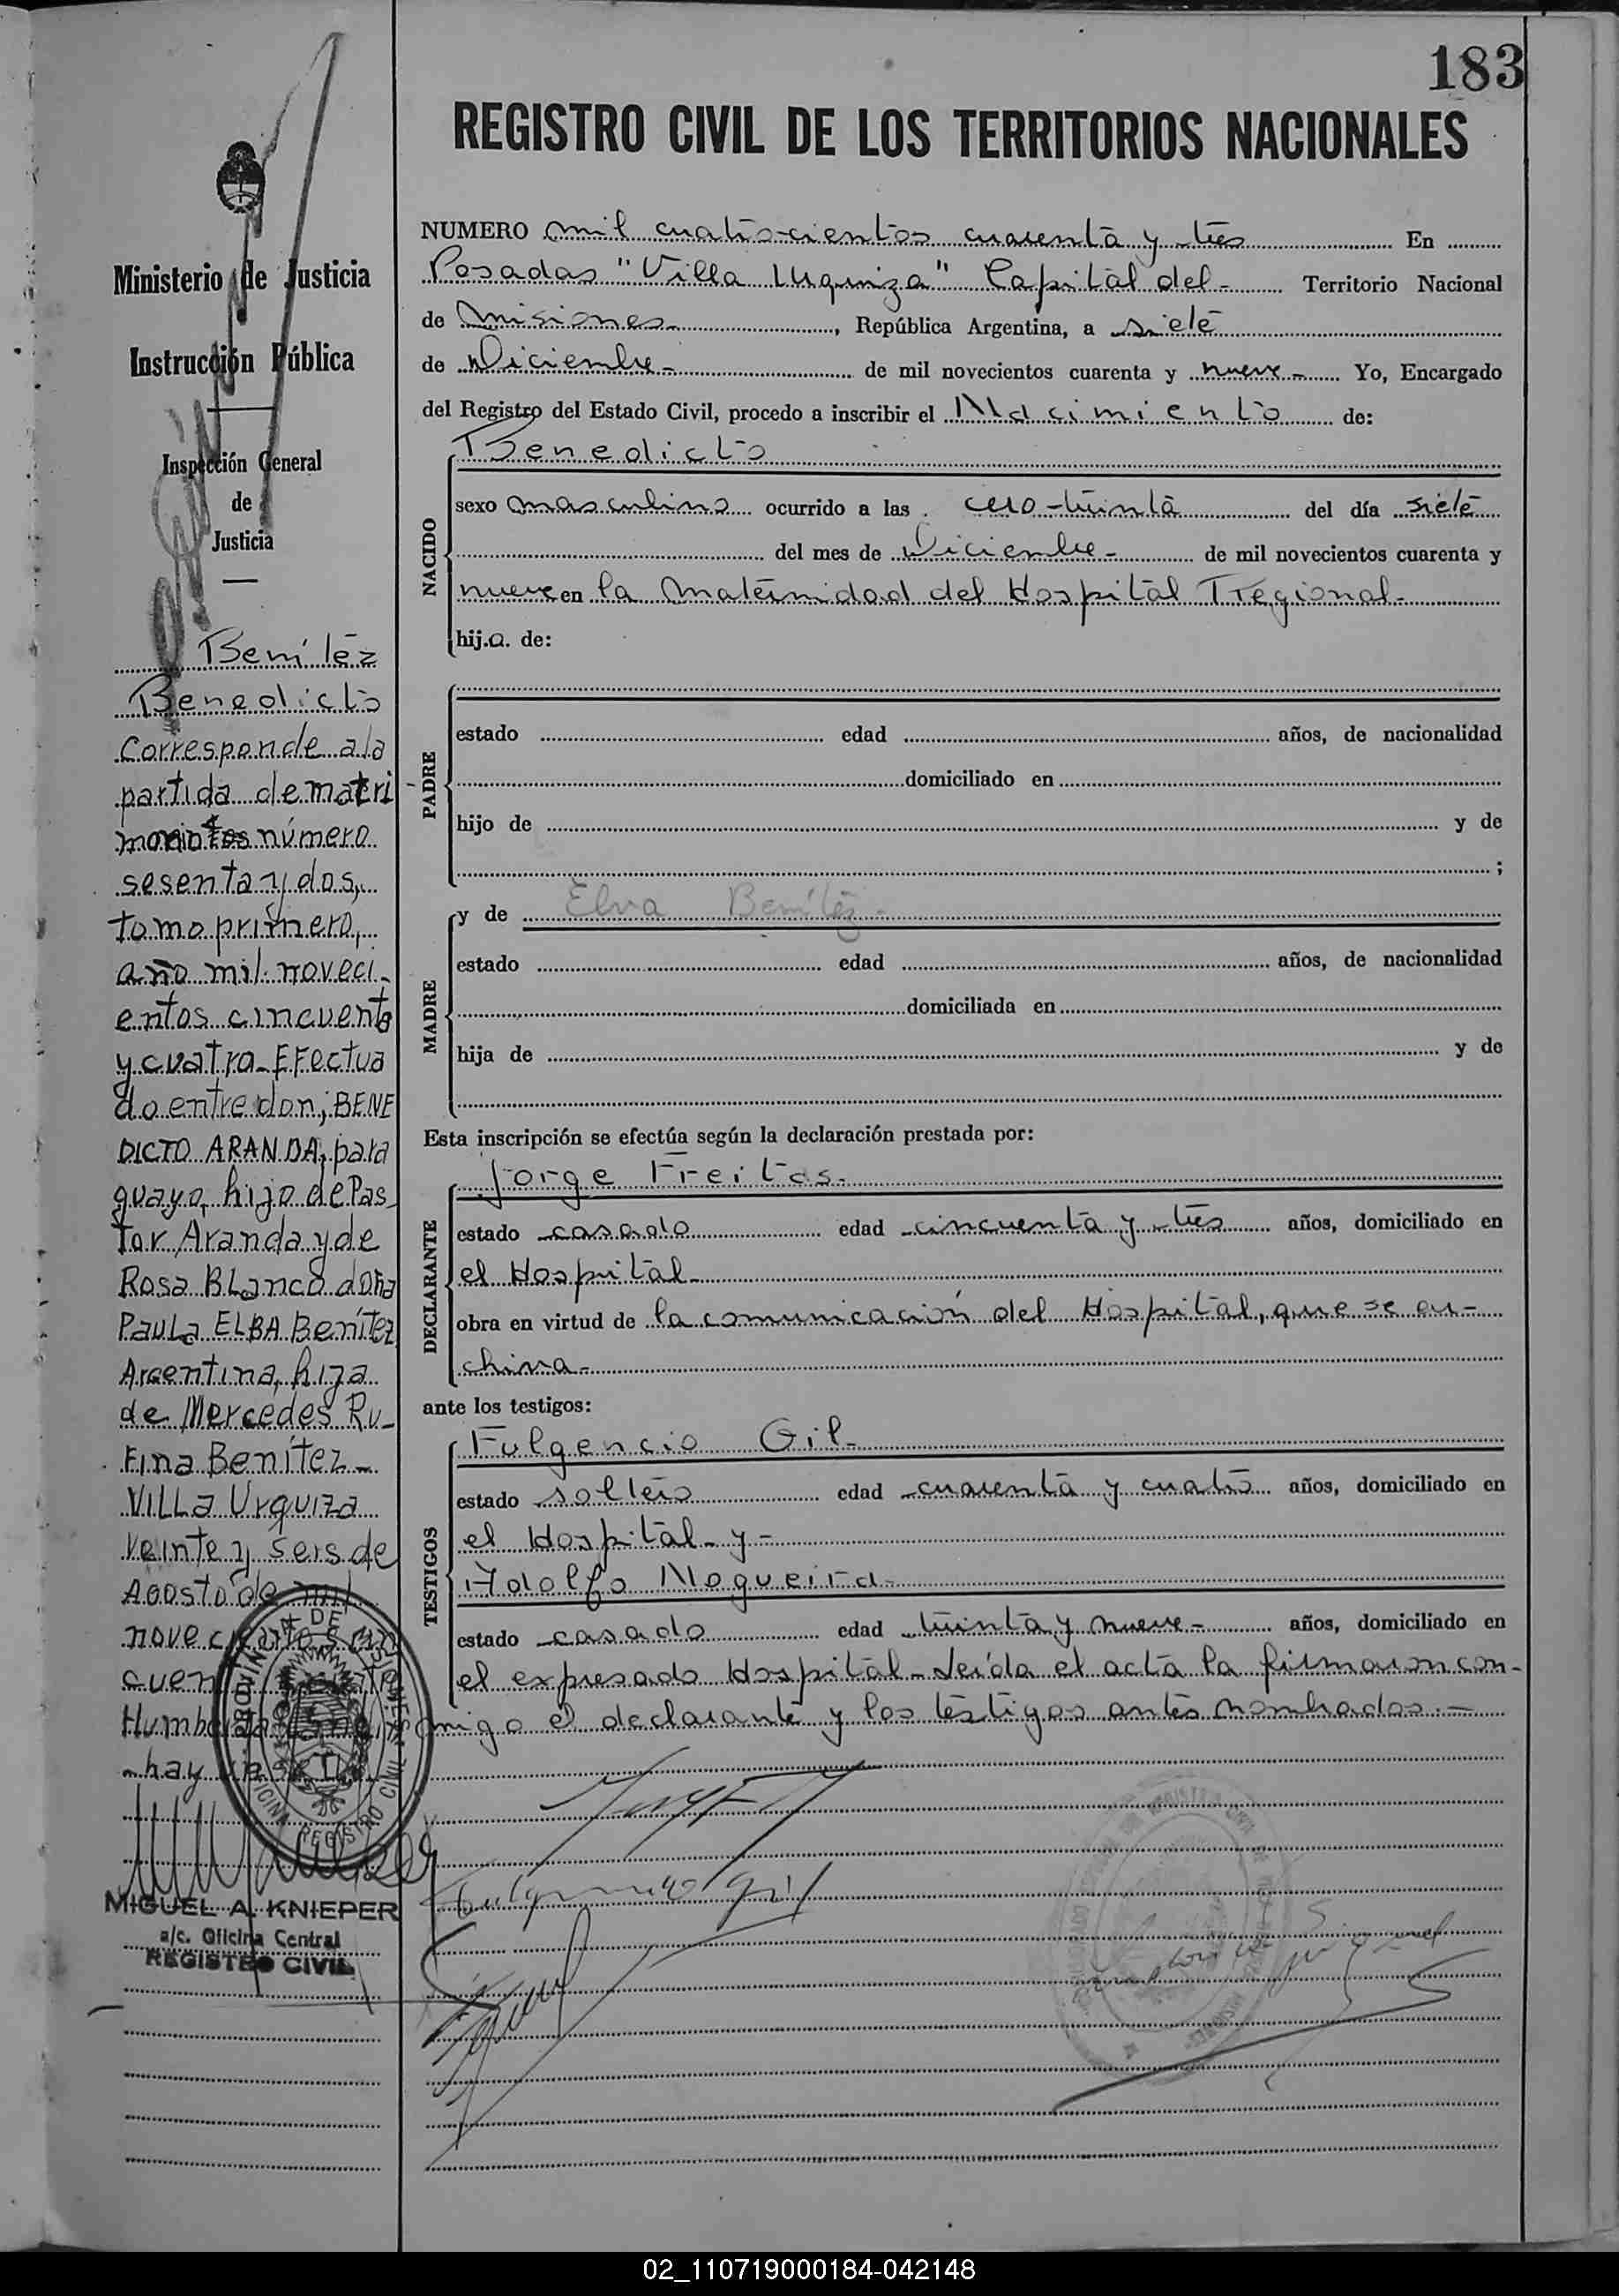 183
REGISTRO CIVIL DE LOS TERRITORIOS NACIONALES
Ministerio de Justicia
Instrucción Pública
Inspección General
de
Justicia
Benítez
Benedicto
Corresponde a la
partida de matri-
monio número
sesenta y dos,
tomo primero,
año mil noveci-
entos cincuenta
y cuatro. Efectua
do entre don; BENE
DICTO ARANDA, para
guayo, hijo de Pas_
tor Aranda y de
Rosa Blanco doña
Paula ELBA Benítez
Argentina, hija
de Mercedes Ru_
fina Benítez_
Villa Urquiza
veinte y seis de
Agosto de mil
hay
MIGUEL A. KNIEPER
a/c. Oficina Central
REGISTRO CIVIL
NUMERO mil cuatrocientos cuarenta y tres En
Posadas "Villa Urquiza" Capital del- Territorio Nacional
de Misiones- , República Argentina, a siete
de Diciembre- de mil novecientos cuarenta y nueve- Yo, Encargado
del Registro del Estado Civil, procedo a inscribir el Nacimiento de:
Benedicto
NACIDO
sexo masculino ocurrido a las cero-treinta del día siete
del mes de Diciembre- de mil novecientos cuarenta y
nueve en la Maternidad del Hospital Regional-
hij.o. de:
PADRE
estado edad años, de nacionalidad
domiciliado en
hijo de y de
;
MADRE
y de Elva Benítez-
estado edad años, de nacionalidad
domiciliada en
hija de y de
Esta inscripción se efectúa según la declaración prestada por:
Jorge Freitas-
DECLARANTE
estado casado edad cincuenta y tres años, domiciliado en
el Hospital-
obra en virtud de la comunicación del Hospital, que se ar-
chiva-
ante los testigos:
Fulgencio Gil-
TESTIGOS
estado soltero edad cuarenta y cuatro años, domiciliado en
el Hospital- y-
Adolfo Nogueira-
estado casado edad treinta y nueve- años, domiciliado en
el expresado Hospital-Leída el acta la firmaron con-
migo el declarante y los testigos antes nombrados.-
Fulgencio Gil
02_110719000184-042148